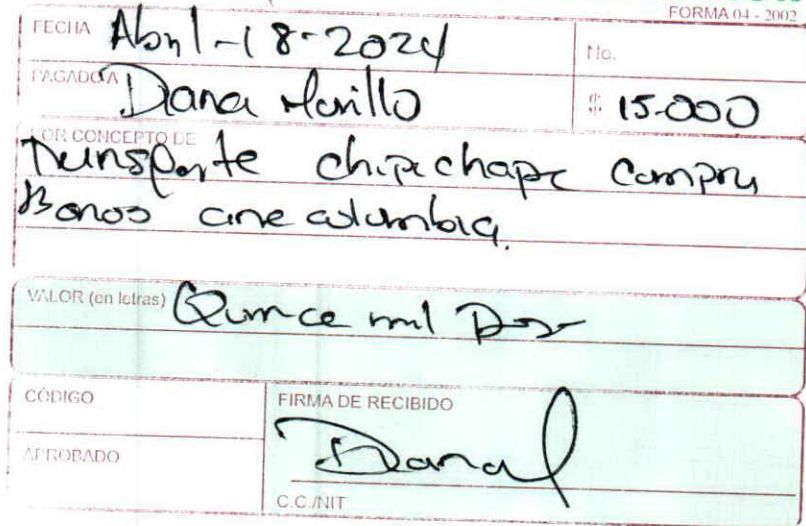 FORMA 04 - 2002
FECHA Abril-18-2024
No.
PAGADO A Diana Morillo
$ 15.000
POR CONCEPTO DE
Transporte chipichape compra
Bonos cine colombia.
VALOR (en letras) Quince mil
CÓDIGO
FIRMA DE RECIBIDO
APROBADO
C.C./NIT